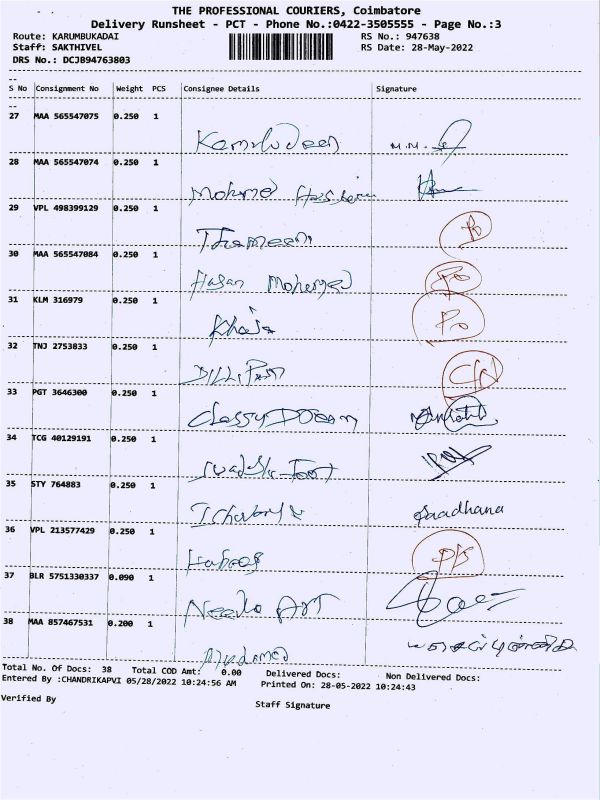 THE PROFESSIONAL COURIERS, Coimbatore
Delivery Runsheet - PCT - Phone No.:0422-3505555 - Page No.:3
Route: KARUMBUKADAI RS No.: 947638
Staff: SAKTHIVEL RS Date: 28-May-2022
DRS No.: DCJB94763803
S No Consignment No Weight PCS Consignee Details Signature
27 MAA 565547075 0.250 1
Kamludeen M.M.
28 MAA 565547074 0.250 1
Mohmed
29 VPL 498399129 0.250 1
Thameem
30 MAA 565547084 0.250 1
Hasan Mohemed
31 KLM 316979 0.250 1
Khaja
32 TNJ 2753833 0.250 1
33 PGT 3646300 0.250 1
Classy Dream
34 TCG 40129191 0.250 1
35 STY 764883 0.250 1
Saadhana
36 VPL 213577429 0.250 1
37 BLR 5751330337 0.090 1
Neela Art
38 MAA 857467531 0.200 1
Total No. Of Docs: 38 Total COD Amt: 0.00 Delivered Docs: Non Delivered Docs:
Entered By :CHANDRIKAPVI 05/28/2022 10:24:56 AM Printed On: 28-05-2022 10:24:43
Verified By
Staff Signature